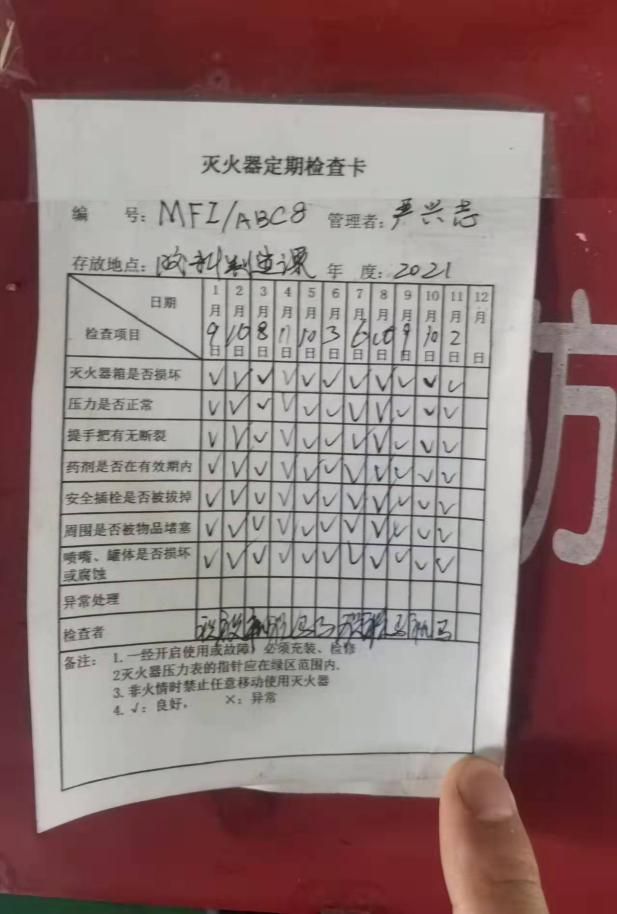 灭火器定期检查卡
编 号: MFZ/ABC8 管理者: 严兴志
存放地点: 制造课 年 度: 2021
日期 1月9日 2月10日 3月8日 4月11日 5月10日 6月3日 7月6日 8月10日 9月9日 10月10日 11月2日 12月 日
检查项目
灭火器箱是否损坏 √ √ √ √ √ √ √ √ √ √ √
压力是否正常 √ √ √ √ √ √ √ √ √ √ √
提手把有无断裂 √ √ √ √ √ √ √ √ √ √ √
药剂是否在有效期内 √ √ √ √ √ √ √ √ √ √ √
安全插栓是否被拔掉 √ √ √ √ √ √ √ √ √ √ √
周围是否被物品堵塞 √ √ √ √ √ √ √ √ √ √ √
喷嘴、罐体是否损坏 √ √ √ √ √ √ √ √ √ √ √
或腐蚀
异常处理
检查者
备注: 1. 一经开启使用或故障，必须充装、检修
2灭火器压力表的指针应在绿区范围内.
3. 非火情时禁止任意移动使用灭火器
4. √: 良好, ×: 异常